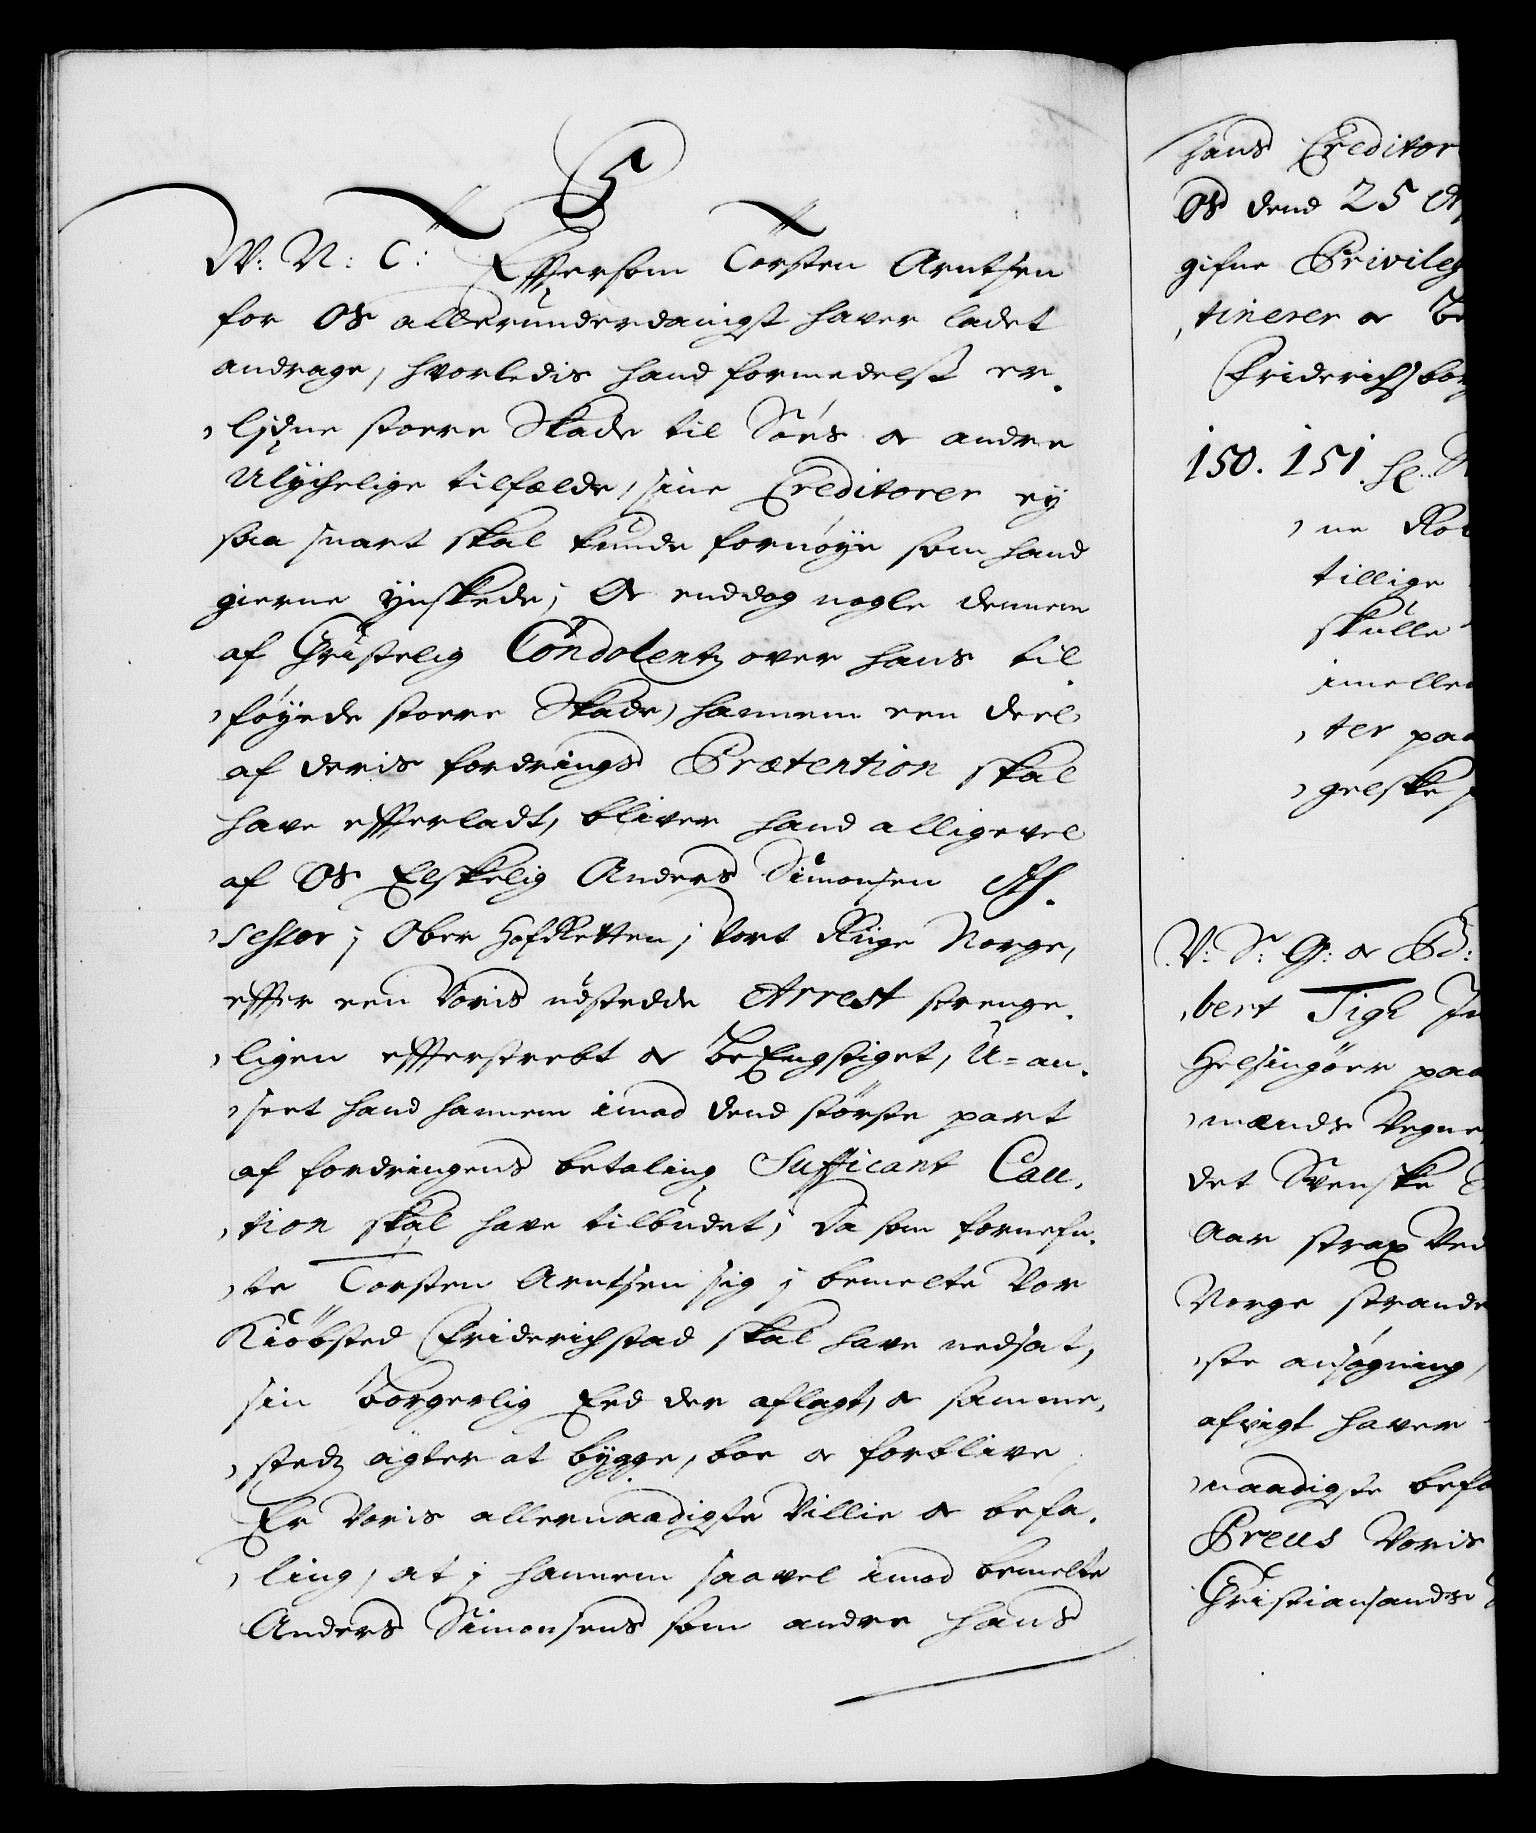 W: N: C: Effersom Torsten Arntsen
for Os allerunderdanigst haver ladet
andrage, hvorledis hand formedelst er-
lidne stoere Skade til Söes oc andre
Ulychelige tilfælde, sine Creditorer ey
saa snart skal kunde fornöye som hand
gierne ynskede; Oc enddog nogle dennem
af Christelig Condolentz over hans til-
föyede stoere Skade, hannem een deel
af deris fordrings Prætention skal
have efferladt, bliver hand alligevel
af Os Elskelig Anders Simonsen Ass-
sessor j Ober HofRetten j Vort Rige Norge,
effter een Voris udstedde Arrest strenge-
ligen effterstrebt oc beEngstiget, U=an-
seet hand hannem imod dend störste part
af fordringens betaling Sufficant Cau-
tion skal have tilbudet; Da som fornefn-
te Torsten Arntsen sig j bemelte Vor
Kiöbsted Friderichstad skal have nedsat,
sin borgerlig Eed der aflagt, oc samme-
stedz agter at bygge, boe oc forblive
Er Voris allernaadigste Villie oc befa-
ling, at j hannem saavel imod bemelte
Anders Simonsens som andre hans
hans Creditor
Os dend 25
gifne Privileg
tinerer oc Be
Friderichsbor
150. 151. Sl.
ne
tillige
skulle
imellem
ter paa
gelske
V: S: G: oc
bert Tigh
Helsingöer paa
mænds Vegne
det Svenske
Aar strax Ved
Norge strande
ste ansögning,
afvigt haver
naadigste befa
Preus Voris
Christiansands